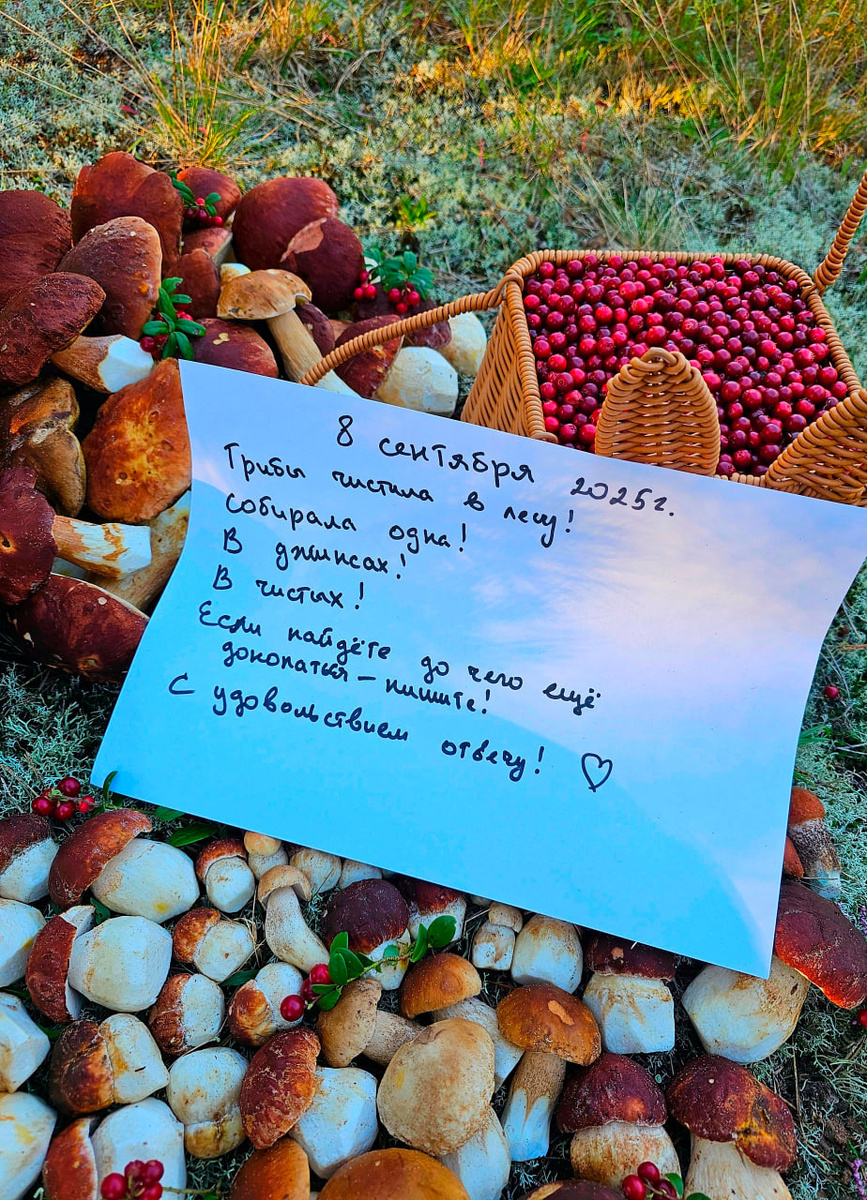 8 сентября 2025г.
Грибы чистила в лесу!
Собирала одна!
В джинсах!
В чистых!
Если найдёте до чего ещё
докопаться – пишите!
С удовольствием отвечу! ♡